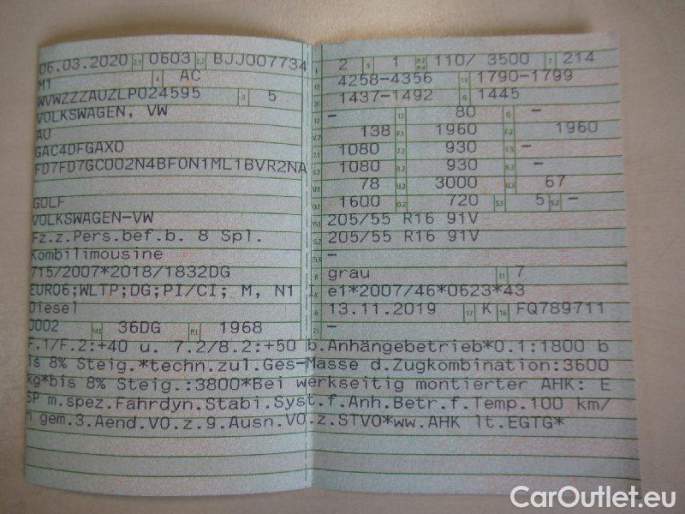 06.03.2020 0603 BJJ007734
M1 AC
WVWZZZAUZLP024595 5
VOLKSWAGEN, VW
AU
GAC4DFGAX0
FD7FD7GC002N4BFON1ML1BVR2NA
GOLF
VOLKSWAGEN-VW
Fz.z.Pers.bef.b. 8 Spl.
Kombilimousine
715/2007*2018/1832DG
EURO6;WLTP;DG;PI/CI; M, N1
Diesel
0002 36DG 1968
2 1 110/ 3500 214
4258-4356 1790-1799
1437-1492 1445
- 80 -
138 1960 1960
1080 930 -
1080 930 -
78 3000 67
1600 720 5 -
205/55 R16 91V
205/55 R16 91V
-
grau 7
e1*2007/46*0623*43
13.11.2019 K FQ789711
-
F.1/F.2:+40 u. 7.2/8.2:+50 b.Anhängebetrieb*0.1:1800 b
is 8% Steig.*techn.zul.Ges-Masse d.Zugkombination:3600
kg*bis 8% Steig.:3800*Bei werkseitig montierter AHK: E
SP m.spez.Fahrdyn.Stabi.Syst.f.Anh.Betr.f.Temp.100 km/
h gem.3.Aend.VO.z.9.Ausn.VO.z.STVO*ww.AHK lt.EGTG*
CarOutlet.eu